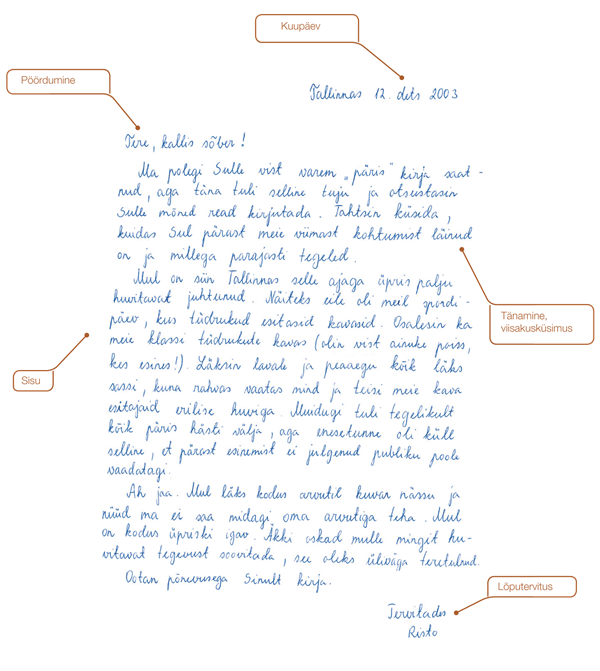 Kuupäev
Pöördumine
Tallinnas 12. dets 2003
Tere, kallis sõber!
Ma polegi Sulle vist varem „päris" kirja saat-
nud, aga täna tuli selline tuju ja otsustasin
Sulle mõned read kirjutada. Tahtsin küsida,
kuidas Sul pärast meie viimast kohtumist läinud
on ja millega parajasti tegeled.
Mul on siin Tallinnas selle ajaga üpris palju
huvitavat juhtunud. Näiteks eile oli meil spordi-
päev, kus tüdrukud esitasid kavasid. Osalesin ka
meie klassi tüdrukute kavas (olin vist ainuke poiss,
kes esines!). Läksin lavale ja peaaegu kõik läks
sassi, kuna rahvas vaatas mind ja teisi meie kava
esitajaid erilise huviga. Muidugi tuli tegelikult
kõik päris hästi välja, aga enesetunne oli küll
selline, et pärast esinemist ei julgenud publiku poole
vaadatagi.
Ah jaa. Mul läks kodus arvutil kuvar nässu ja
nüüd ma ei saa midagi oma arvutiga teha. Mul
on kodus üpriski igav. Äkki oskad mulle mingit hu-
vitavat tegevust soovitada, see oleks üliväga teretulnud.
Ootan põnevusega Sinult kirja.
Tervitades
Risto
Tänamine,
viisakusküsimus
Sisu
Lõputervitus